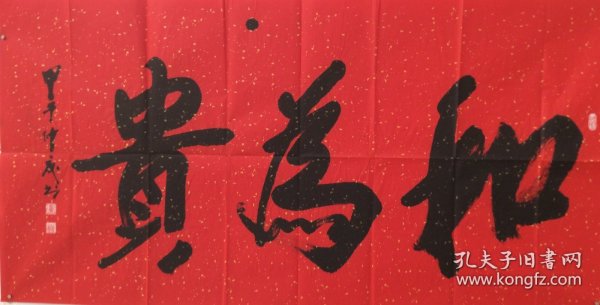 和為貴
孔夫子旧书网
www.kongfz.com